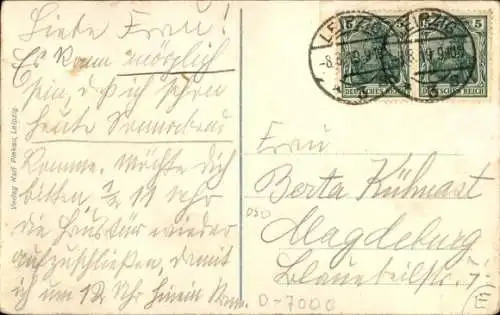 Liebe Frau!
Es kann möglich
sein, daß ich schon
heute Sonnabend
komme. Möchte dich
bitten ½ 11 Uhr
die Haustür wieder
aufzuschließen, damit
ich um 12 Uhr hinein kann.
Verlag Karl Pinkau, Leipzig.
LEIPZIG
LEIPZIG
5
DEUTSCHES REICH
DEUTSCHES REICH
Frau
Berta Kühnast
Magdeburg
Blauebeilstr.
O-7000